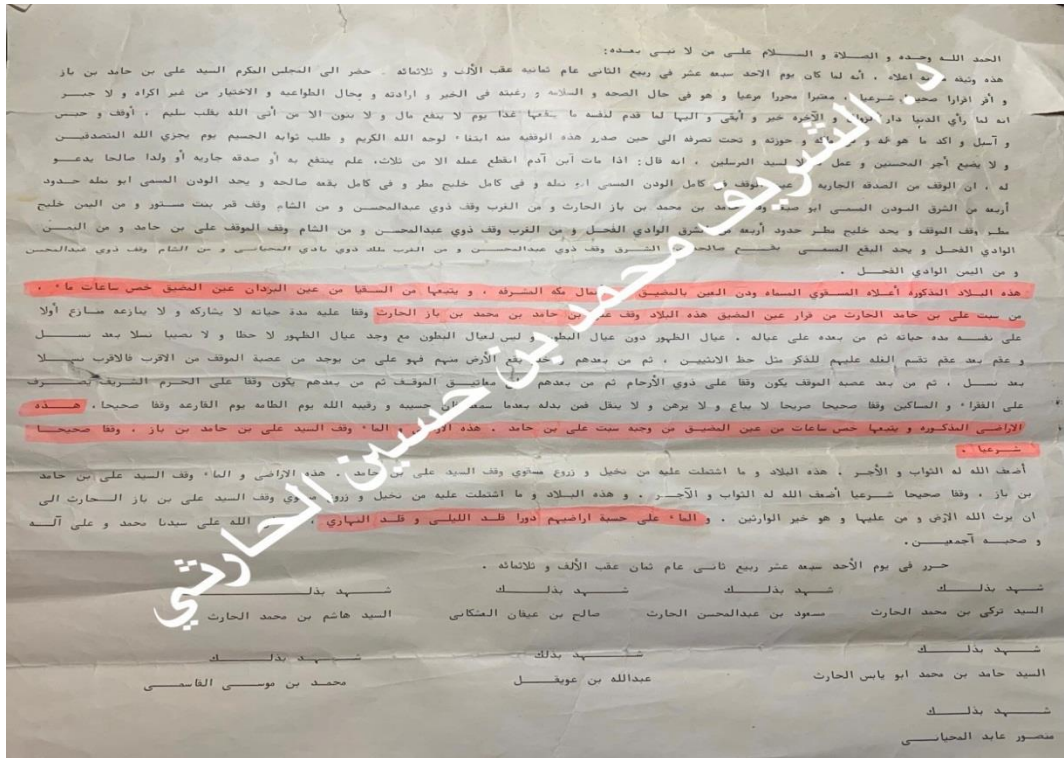 الحمد اللـه وحـده و الصـلاة و السـلام علـى مـن لا نبـى بعـده:
هذه وثيقة اعلاه ، أنه لما كان يوم الاحد سبعه عشر في ربيع الثانى عام ثمانيه عقب الألف و ثلاثمائه . حضر الى المجلس المكرم السيد على بن حامد بن باز
و أقر اقرارا صحيحا شرعيا معتبرا محررا مرعيا و هو فى حال الصحه و السلامه و رغبته فى الخير و ارادته و بحال الطواعيه و الاختيار من غير اكراه و لا جبـر
انه لما رأي الدنيا دار الزوال و الآخره خير و أبقى و اليها لما قدم لنفسه ما ينفعها غدا يوم لا ينفع مال و لا بنون الا من أتى الله بقلب سليم . أوقف و حبـس
و آسبل و اكد ما هو له و حوزته و تحت تصرفه الى حين صدور هذه الوقفيه منه ابتغاء لوجه الله الكريم و طلب ثوابه الجسيم يوم يجزي الله المتصدقيـن
و لا يضيع أجر المحسنين و عمل لسيد المرسلين . انه قال: اذا مات آبن آدم انقطع عمله الا من ثلاث، علم ينتفع به أو صدقه جاريه أو ولدا صالحا يدعـو
له . ان الوقف من الصدقه الجاريه الموقف فى كامل الودن المسمى ابو نمله و فى كامل خليج مطر و فى كامل بقعه صالحه و يحد الودن المسمى ابو نمله حـدود
أربعه من الشرق البودن المسمى ابو حامد بن محمد بن باز الحارث و من الغرب وقف ذوي عبدالمحسـن و من الشام وقف قمر بنت مستور و من اليمن خليج
مطـر وقف الموقف و يحد خليج مطـر حدود أربعه الشرق الوادي الفحـل و من الغرب وقف ذوي عبدالمحسـن و من الشام وقف الموقف على بن حامد و من اليمـن
الوادي الفحـل و يحد البقع المسمـى صالحه الشرق وقف ذوي عبدالمحسـن و من الغرب ملك ذوي بادي المحيانـى و من الشام وقف ذوي عبدالمحسن
و من اليمن الوادي الفحـل .
هذه البلاد المذكورة أعلاه السـقوي المسماه ودن العين بالمضيـق شمال مكه المشرفه ، و يتبعها من السقيا من عين البردان عين المضيق خمس ساعات ماء .
من سبت على بن حامد الحارث من قرار عين المضيق هذه البلاد وقف على بن حامد بن محمد بن باز الحارث وقفا عليه مدة حياته لا يشاركه و لا ينازعه منازع أولا
على نفسـه مده حياته ثم من بعده على عياله . عيال الظهور دون عيال البطون و ليس لعيال البطون مع وجد عيال الظهور لا حظا و لا نصيبا نسلا بعد نسـل
و عقم بعد عقم تقسم الغله عليهم للذكر مثل حظ الانثييـن . ثم من بعدهم الأرض منهم فهو على من يوجد من عصبة الموقف من الاقرب فالاقرب نسـلا
بعد نسـل . ثم من بعد عصبه الموقف يكون وقفا على ذوي الأرحام ثم من بعدهم معاتيق الموقـف ثم من بعدهم يكون وقفا على الحـرم الشريف يصـرف
على الفقراء و المساكين وقفا صحيحا صريحا لا يباع و لا يرهن و لا ينقل فمن بدله بعدما سمعه حسيبه و رقيبه الله يوم الطامه يوم القارعه وقفا صحيحا. هـذه
الاراضى المذكوره و يتبعها خمس ساعات من عين المضيـق من وجبه سبت على بن حامد . هذه الاراضى و الماء وقف السيد على بن حامد بن باز . وقفا صحيحـا
شـرعيا .
أضعف الله له الثواب و الأجـر . هذه البلاد و ما اشتملت عليه من نخيل و زروع مسقوي وقف السيد على بن حامد . هذه الاراضى و الماء وقف السيد على بن حامد
بن باز . وقفا صحيحا شـرعيا أضعف الله له الثواب و الآجـر . و هذه البـلاد و ما اشتملت عليه من نخيل و زروع مسقوي وقف السيد على بن باز الحـارث الى
ان يرث الله الارض و من عليها و هو خير الوارثين . و الماء على حسبة اراضيهم دورا قلـد الليلـى و قلـد النهـاري . الله على سيدنا محمد و على آلـه
و صحبـه آجمعيـن .
حـرر فى يوم الأحد سبعه عشر ربيع ثانـى عام ثمان عقب الألـف و ثلاثمائه .
شـهد بذلـك شـهد بذلـك شـهد بذلـك شـهد بذلـك
السيد تركي بن محمد الحارث مسعود بن عبدالمحسن الحارث صالح بن عيقان العشكانى السيد هاشم بن محمد الحارث
شـهد بذلـك شـهد بذلك شـهد بذلـك
السيد حامد بن محمد ابو يابس الحارث عبدالله بن عويقـل محمـد بن موسـى القاسمـى
شـهد بذلـك
منصـور عابد المحيانـى
د. الشريف محمد بن حسين الحارثي